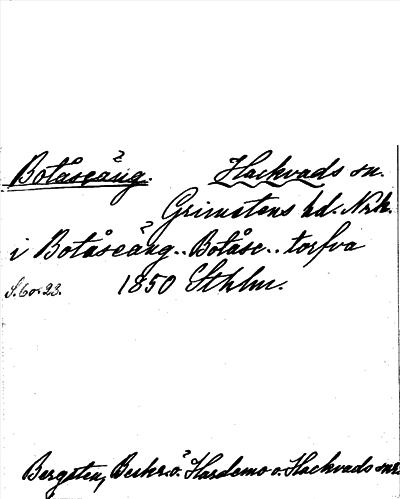 Botåseäng. Hackvads sn.
Grimstens hd. Nrk.
i Botåseäng.. Botåse.. torfva
S. 6 o. 23. 1850 Sthlm.
Bergsten, Beskr. ö. Hardemo o. Hackvads snr